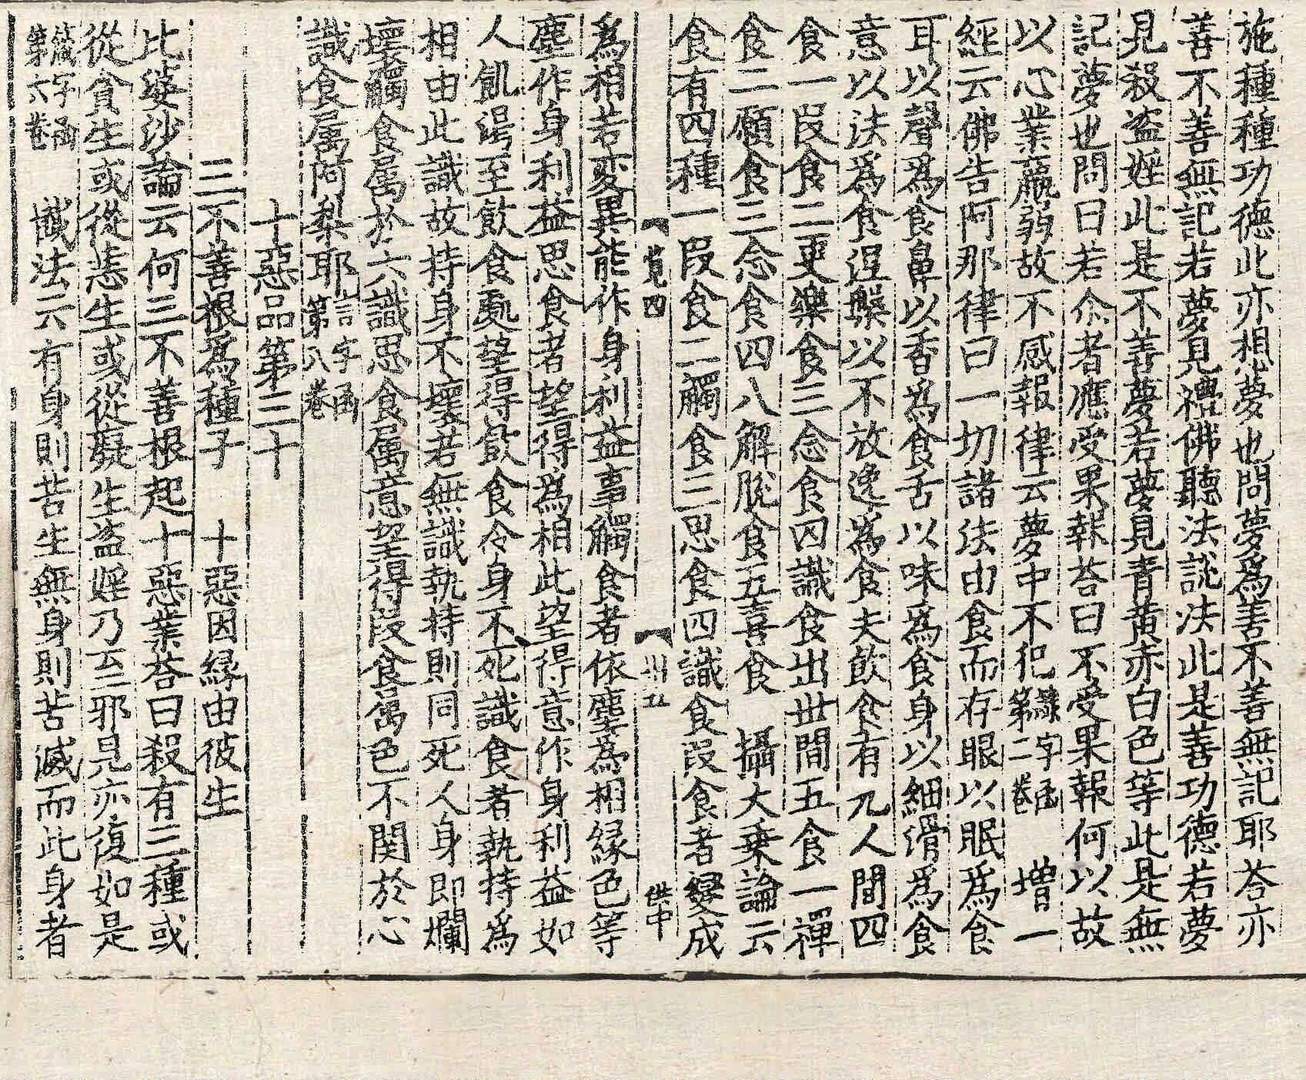 施種種功德此亦想夢也問夢爲善不善無記耶荅亦
善不善無記若夢見禮佛聽法說法此是善功德若夢
見殺盗婬此是不善夢若夢見青黄赤白色等此是無
記夢也問曰若尒者應受果報荅曰不受果報何以故
以心業羸弱故不感報律云夢中不犯
第二卷
字函
增一
經云佛告阿那律曰一切諸法由食而存眼以眠爲食
耳以聲爲食鼻以香爲食舌以味爲食身以細滑爲食
意以法爲食涅槃以不放逸爲食夫飲食有九人間四
食一段食二更樂食三念食四識食出世間五食一禪
食二願食三念食四八解脫食五喜食 攝大乗論云
食有四種一段食二觸食三思食四識食段食者變成
四
五
供中
爲相若変異能作身利益事觸食者依塵爲相縁色等
塵作身利益思食者望得爲相此望得意作身利益如
人飢渴至飲食處望得飲食令身不死識食者執持爲
相由此識故持身不壞若無識執持則同死人身即爛
壞觸食属於六識思食属意望得段食属色不関於心
識食属阿梨耶
言字函
第八卷
十惡品第三十
三不善根爲種子 十惡因縁由彼生
比婆沙論云何三不善根起十惡業荅曰殺有三種或
從貪生或從恚生或從癡生盗婬乃至邪見亦復如是
字函
第六卷
懴法云有身則苦生無身則苦滅而此身者